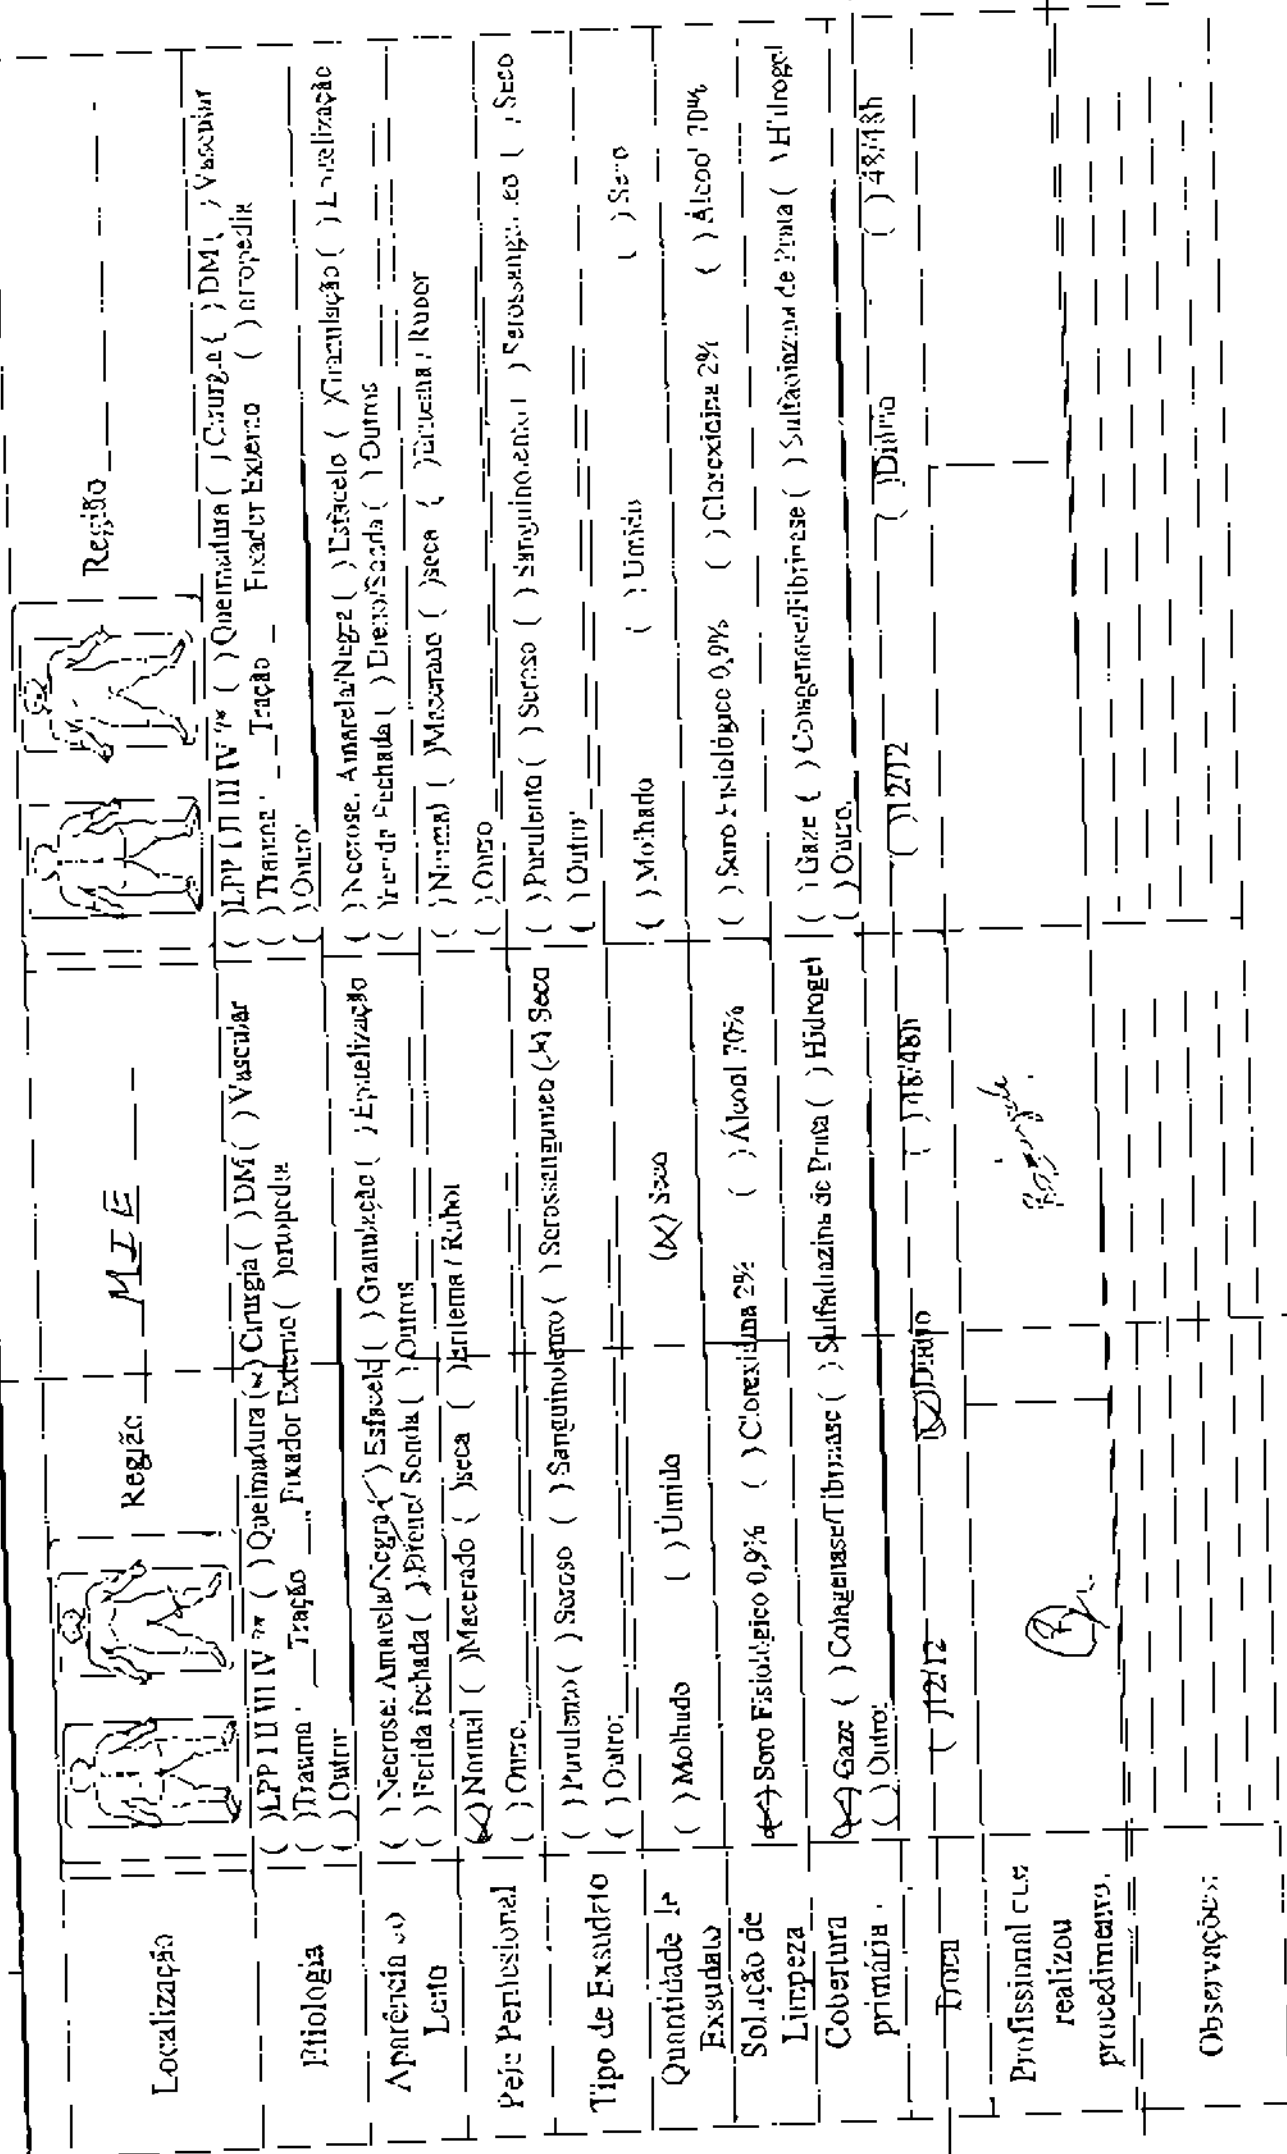 Localização
Região MIE
Região
Etiologia
( )LPP I II III IV ( ) Queimadura (x) Cirurgia ( ) DM ( ) Vascular
( )Trauma Tração Fixador Externo ( )ortopedia
( ) Outro
( )LPP I II III IV ( ) Queimadura ( ) Cirurgia ( ) DM ( ) Vascular
( )Trauma Tração Fixador Externo ( )ortopedia
( )Outro
Aparência do Leito
( ) Necrose: Amarela/Negra ( ) Esfacelo ( ) Granulação ( ) Epitelização
( ) Ferida fechada ( ) Dreno/ Sonda ( ) Outros
( ) Necrose. Amarela/Negra ( ) Esfacelo ( ) Granulação ( ) Epitelização
( ) Ferida Fechada ( ) Dreno/Sonda ( ) Outros
Pele Perilesional
(x) Normal ( )Macerado ( )seca ( )Eritema / Rubor
( ) Outro
( ) Normal ( )Macerado ( )seca ( )Eritema / Rubor
( )Outro
Tipo de Exsudato
( )Purulento ( ) Seroso ( ) Sanguinolento ( ) Serossanguineo (x) Seco
( ) Outro:
( ) Purulento ( ) Seroso ( ) Sanguinolento ( ) Serossanguineo ( ) Seco
( ) Outro
Quantidade de Exsudato
( ) Molhado ( ) Úmido (x) Seco
( ) Molhado ( ) Umido ( ) Seco
Solução de Limpeza
(x) Soro Fisiológico 0,9% ( ) Clorexidina 2% ( ) Álcool 70%
( ) Soro Fisiológico 0,9% ( ) Clorexidina 2% ( ) Álcool 70%
Cobertura primária
(x) Gaze ( ) Colagenase/Fibrinase ( ) Sulfadiazina de Prata ( ) Hidrogel
( ) Outro
( ) Gaze ( ) Colagenase/Fibrinase ( ) Sulfadiazina de Prata ( ) Hidrogel
( ) Outro
Troca
( )12/12 (x)Diário ( ) 48/48h
( )12/12 ( )Diário ( ) 48/48h
Profissional que realizou procedimento.
Observações: